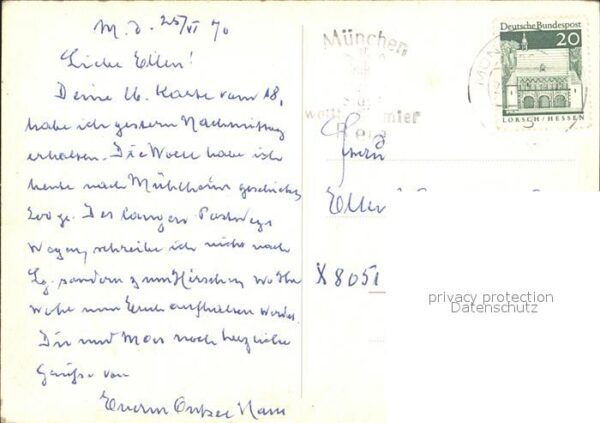 M. d. 25/VI 70
Liebe Ellen!
Deine lb. Karte vom 18.
habe ich gestern Nachmittag
erhalten. Die Wolle habe ich
heute nach geschickt,
200 g. Des langen Postwegs
wegen, schreibe ich nicht nach
Lg. sondern zum Hirschen, wo Ihr
Euch aufhalten werdet.
Dir und noch herzliche
Grüße von
Eurem Onkel Hans
München
Deutsche Bundespost
20
LORSCH/HESSEN
X 8051
privacy protection
Datenschutz